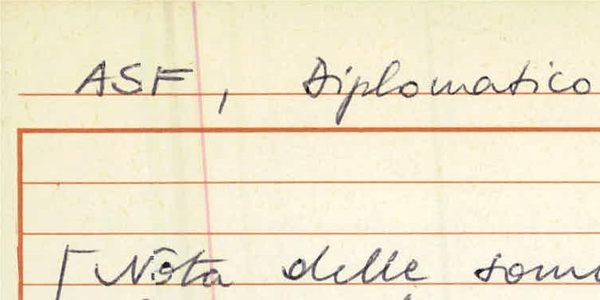 ASF, Diplomatico
[Nota delle som